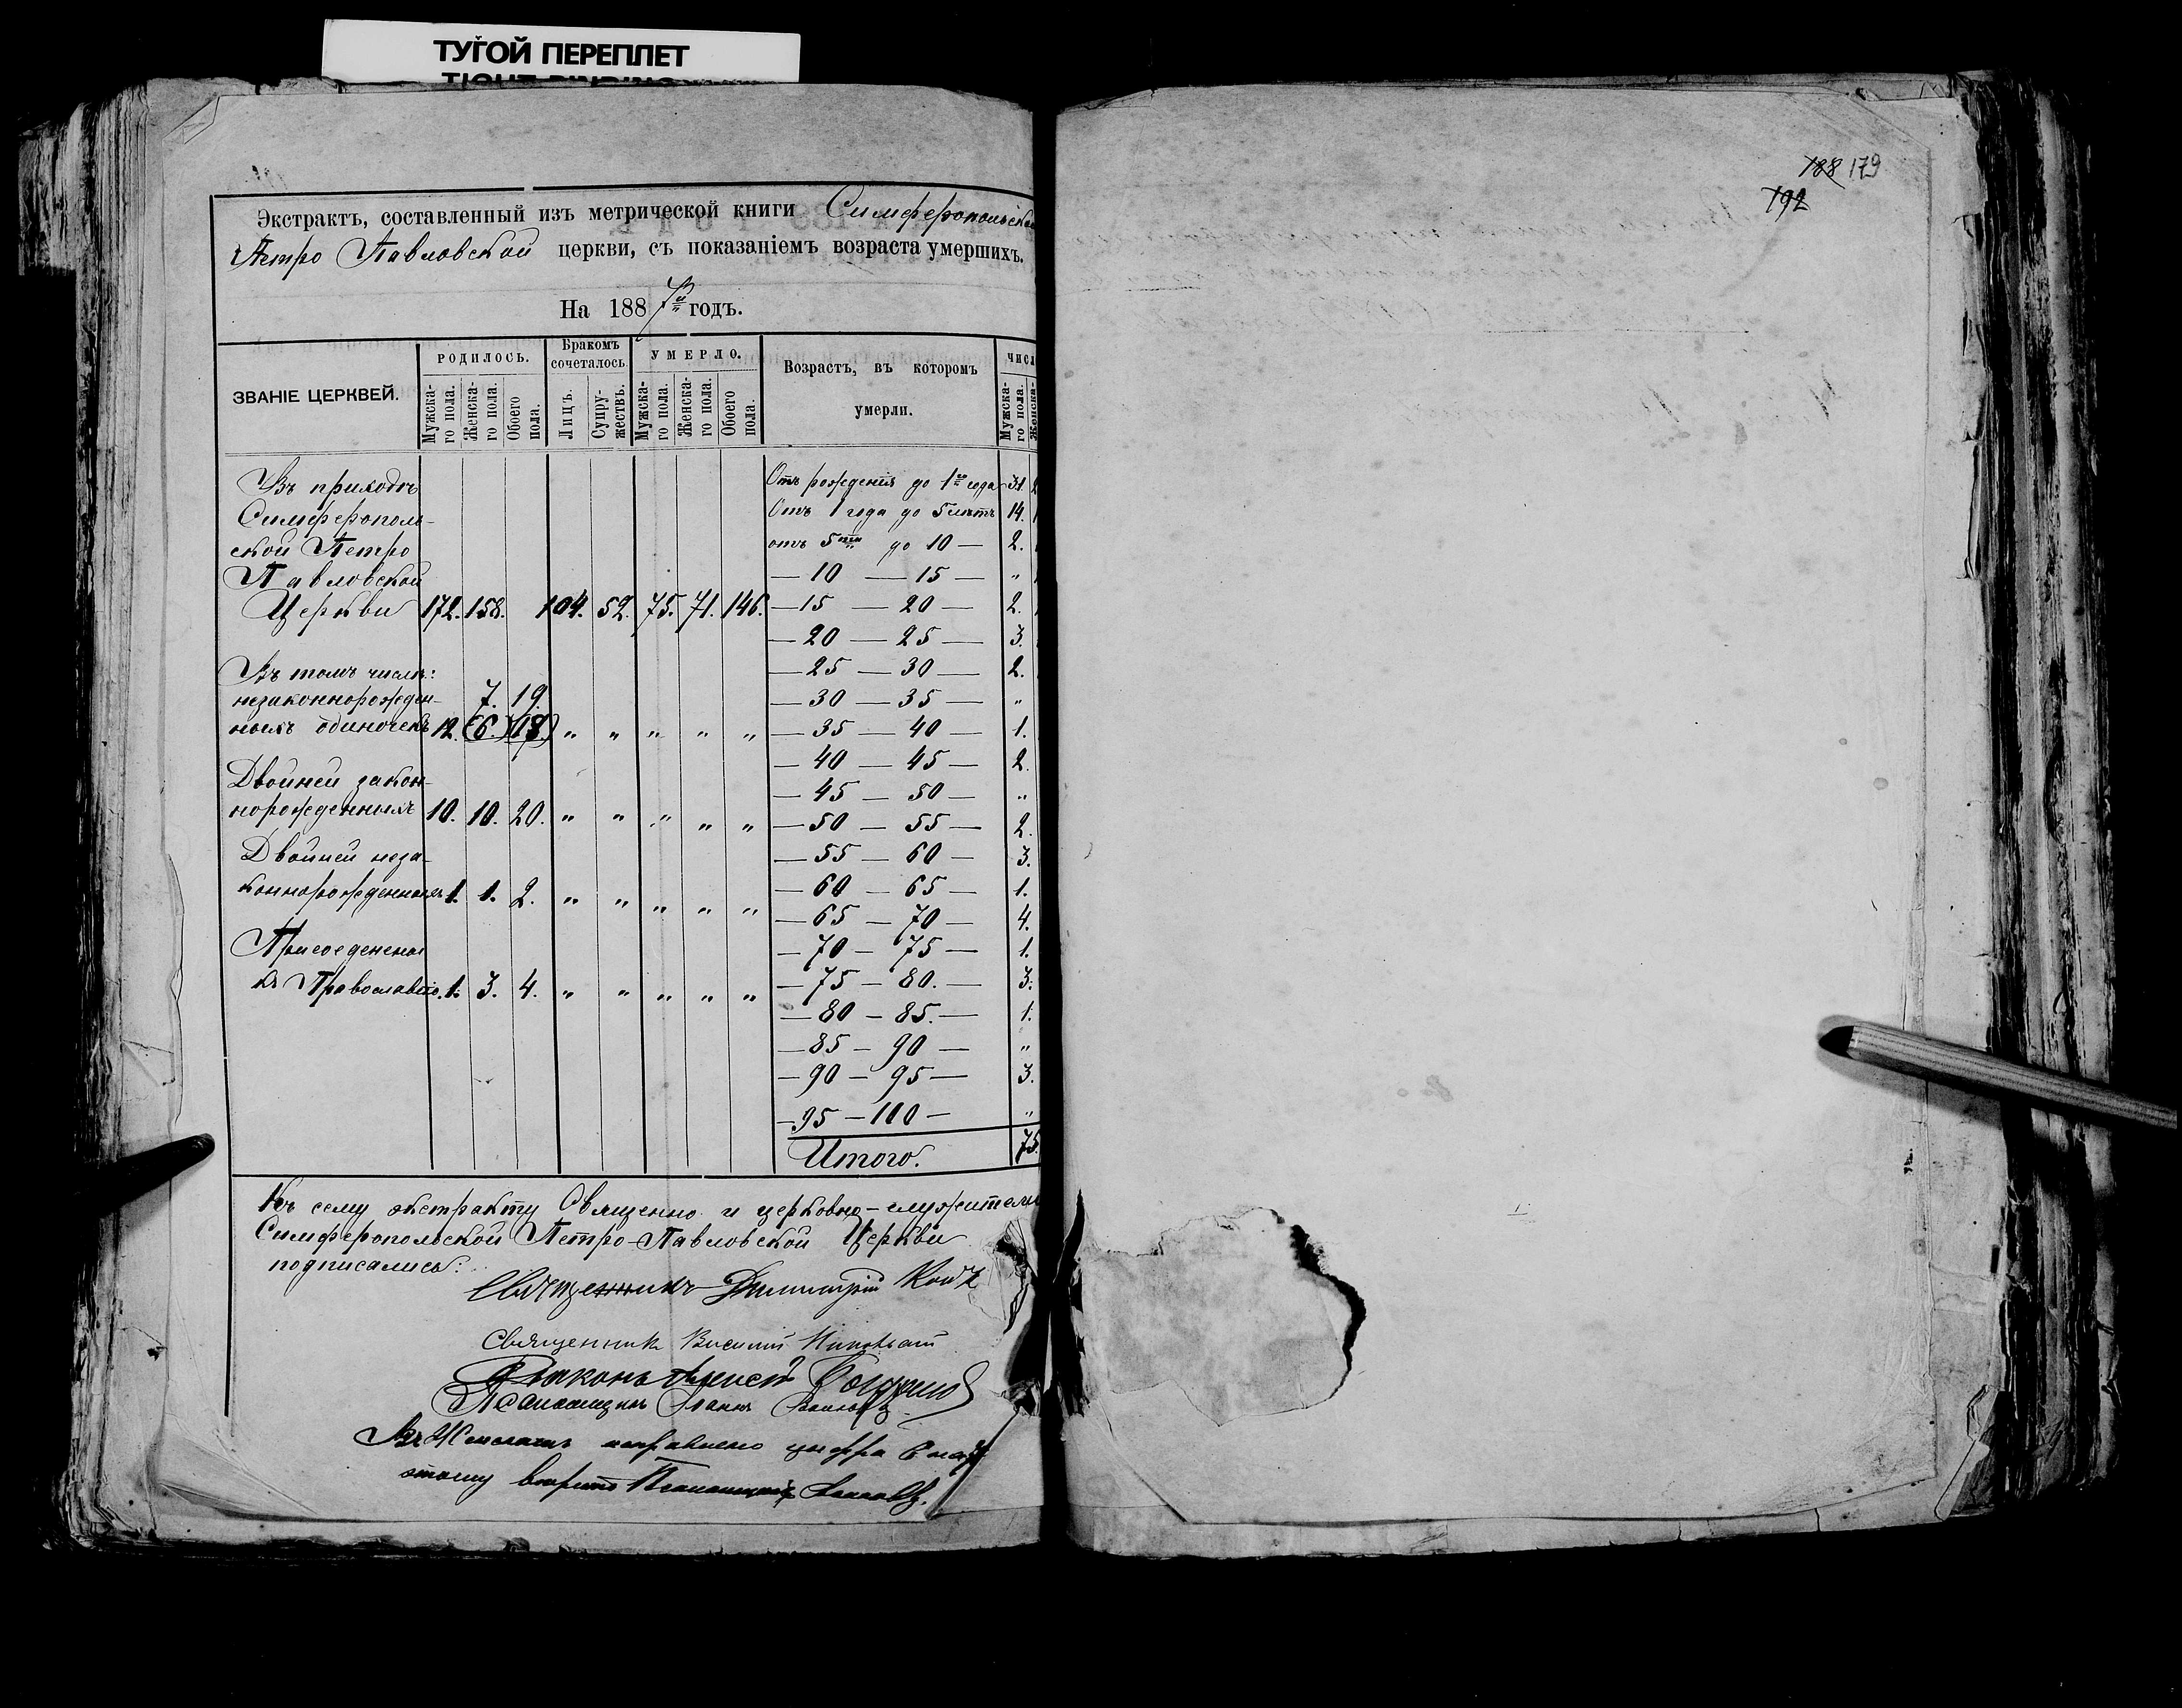 ТУГОЙ ПЕРЕПЛЕТ
TIGHT BINDING
Экстрактъ, составленный изъ метрической книги Симферопольско
Петро Павловской церкви, съ показаніемъ возраста умершихъ.
На 1887й годъ.
ЗВАНІЕ ЦЕРКВЕЙ.
РОДИЛОСЬ.
Мужска-
го пола.
Женска-
го пола.
Обоего
пола.
Бракомъ
сочеталось
Лицъ.
Супру-
жествъ.
УМЕРЛО.
Мужска-
го пола.
Женска-
го пола.
Обоего
пола.
Возрастъ, въ которомъ
умерли.
числ
Мужска-
го пола.
Женска-
Въ приходѣ
Симферополь-
ской Петро
Павловской
Церкви 172. 158. 104. 52. 75. 71. 146.
Въ томъ числѣ:
незаконнорожден- 7. 19.
ныхъ одиночекъ 12. (6.) (18.) " " " " "
Двойней закон-
норожденныхъ 10. 10. 20. " " " " "
Двойней неза-
коннорожденныхъ 1. 1. 2. " " " " "
Присоеденено
къ Православію. 1. 3. 4. " " " " "
Отъ рожденія до 1го года 31.
Отъ 1 года до 5 лѣтъ 14.
отъ 5ти до 10 — 2.
— 10 — 15 — "
— 15 — 20 — 2.
— 20 — 25 — 3.
— 25 — 30 — 2.
— 30 — 35 — "
— 35 — 40 — 1.
— 40 — 45 — 2.
— 45 — 50 — "
— 50 — 55 — 2.
— 55 — 60 — 3.
— 60 — 65 — 1.
— 65 — 70 — 4.
— 70 — 75 — 1.
— 75 — 80. — 3.
— 80 — 85. — 1.
— 85 — 90 — "
— 90 — 95 — 3.
— 95 — 100 — "
Итого. 75.
Къ сему экстракту Священно и церковно-служители
Симферопольской Петро-Павловской Церкви
подписались:
Священникъ Димитрій
Священникъ Василий
Діаконъ
Псаломщикъ Іоаннъ
исправлено цифра 6 на 7
этому вѣрить Псаломщикъ
188 179
192